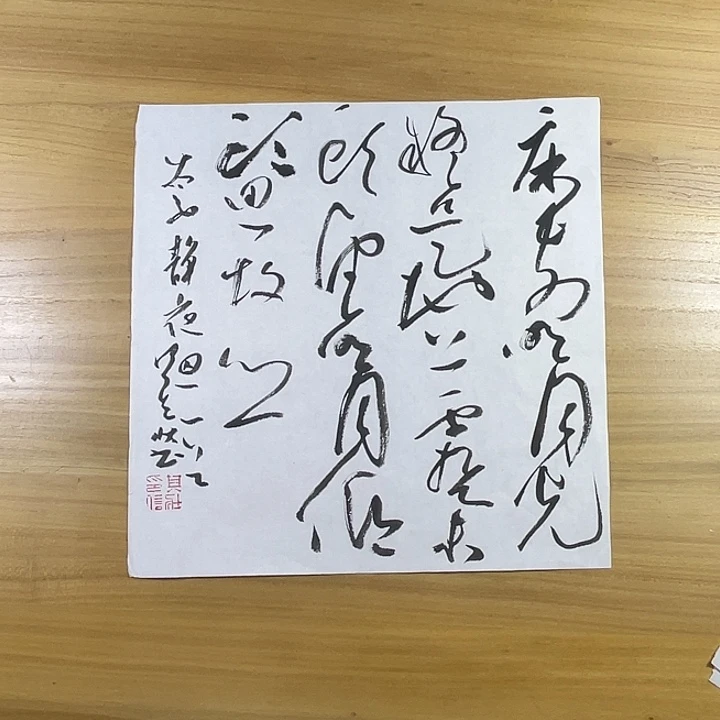 床前明月光
疑是地上霜举
頭望明月低
頭思故乡
李白静夜思